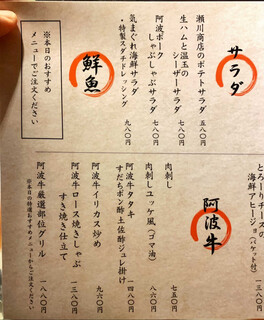 サラダ
瀬川商店のポテトサラダ 五八〇
生ハムと温玉の
シーザーサラダ 七八〇
阿波ポーク
しゃぶしゃぶサラダ 七八〇
気まぐれ海鮮サラダ
・特製スダチドレッシング 九八〇
鮮魚
※本日のおすすめ
メニューでご注文ください
とろーりチーズの
海鮮アヒージョ(バケット付)
一三八〇
阿波牛
肉刺し 七五〇
肉刺しユッケ風(ゴマ油) 八六〇
阿波牛タタキ
すだちポン酢土佐酢ジュレ掛け 一四八〇
阿波牛イリカス炒め 九六〇
阿波牛ロース焼きしゃぶ
すき焼き仕立て 一三八〇
阿波牛厳選部位グリル
※本日の特選おすすめメニューからご注文ください